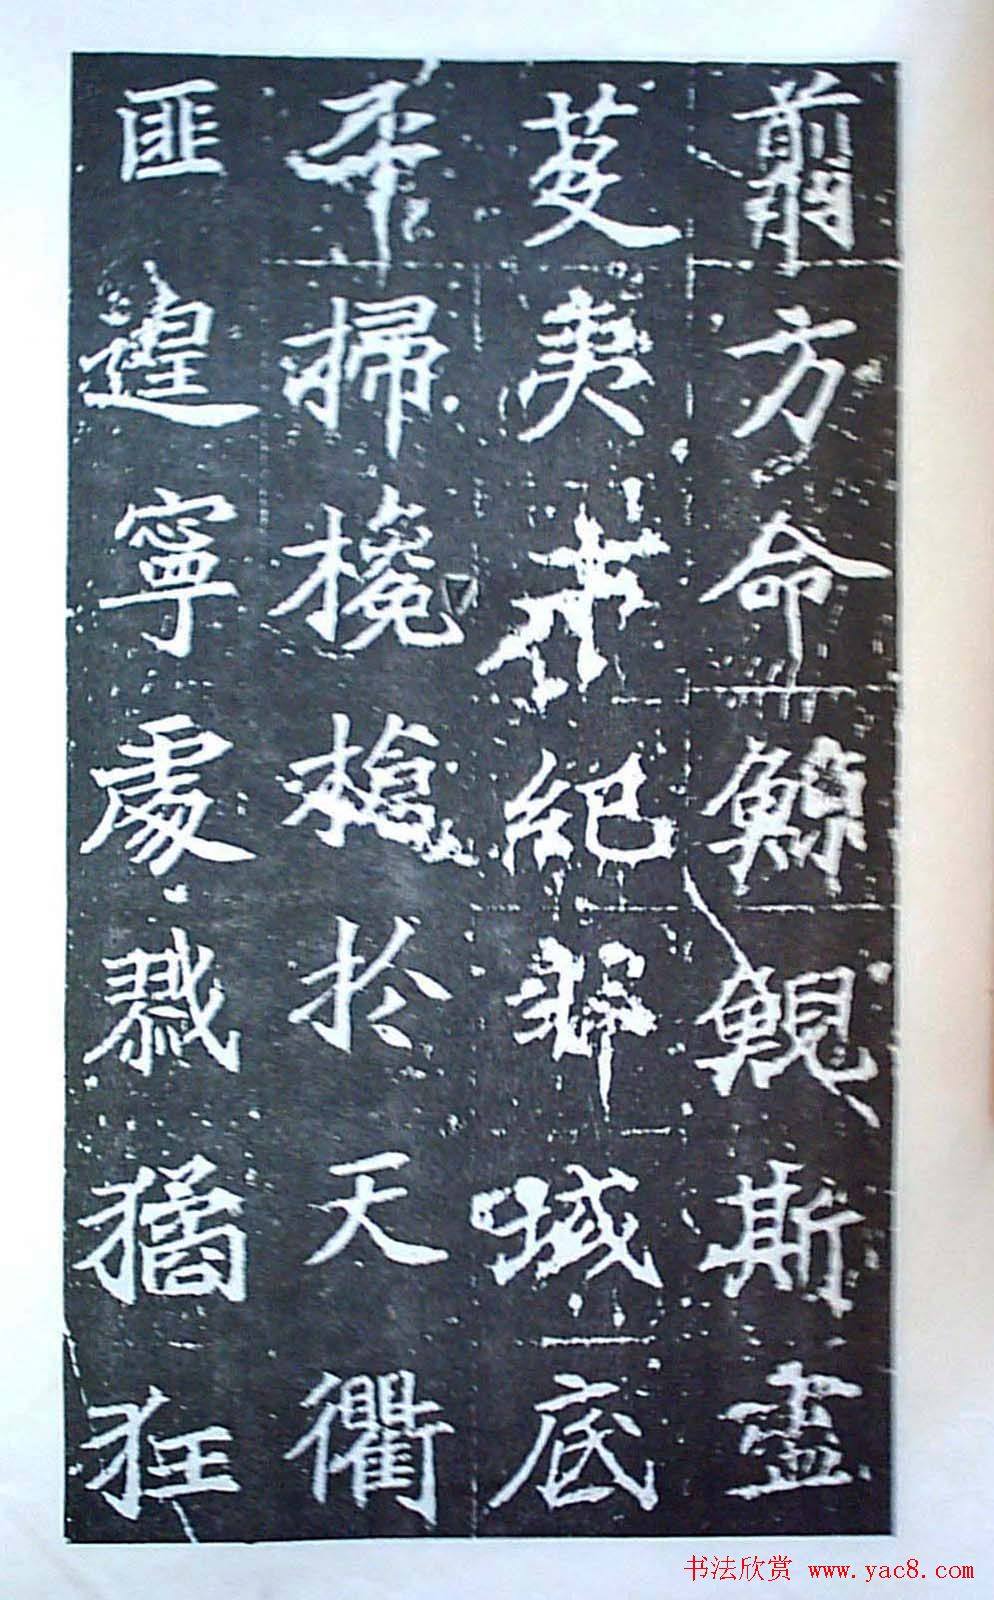 翦方命鯨鯢斯盡
芟夷紀域底
平掃欃槍於天衢
匪遑寧處獝狂
书法欣赏 www.yac8.com